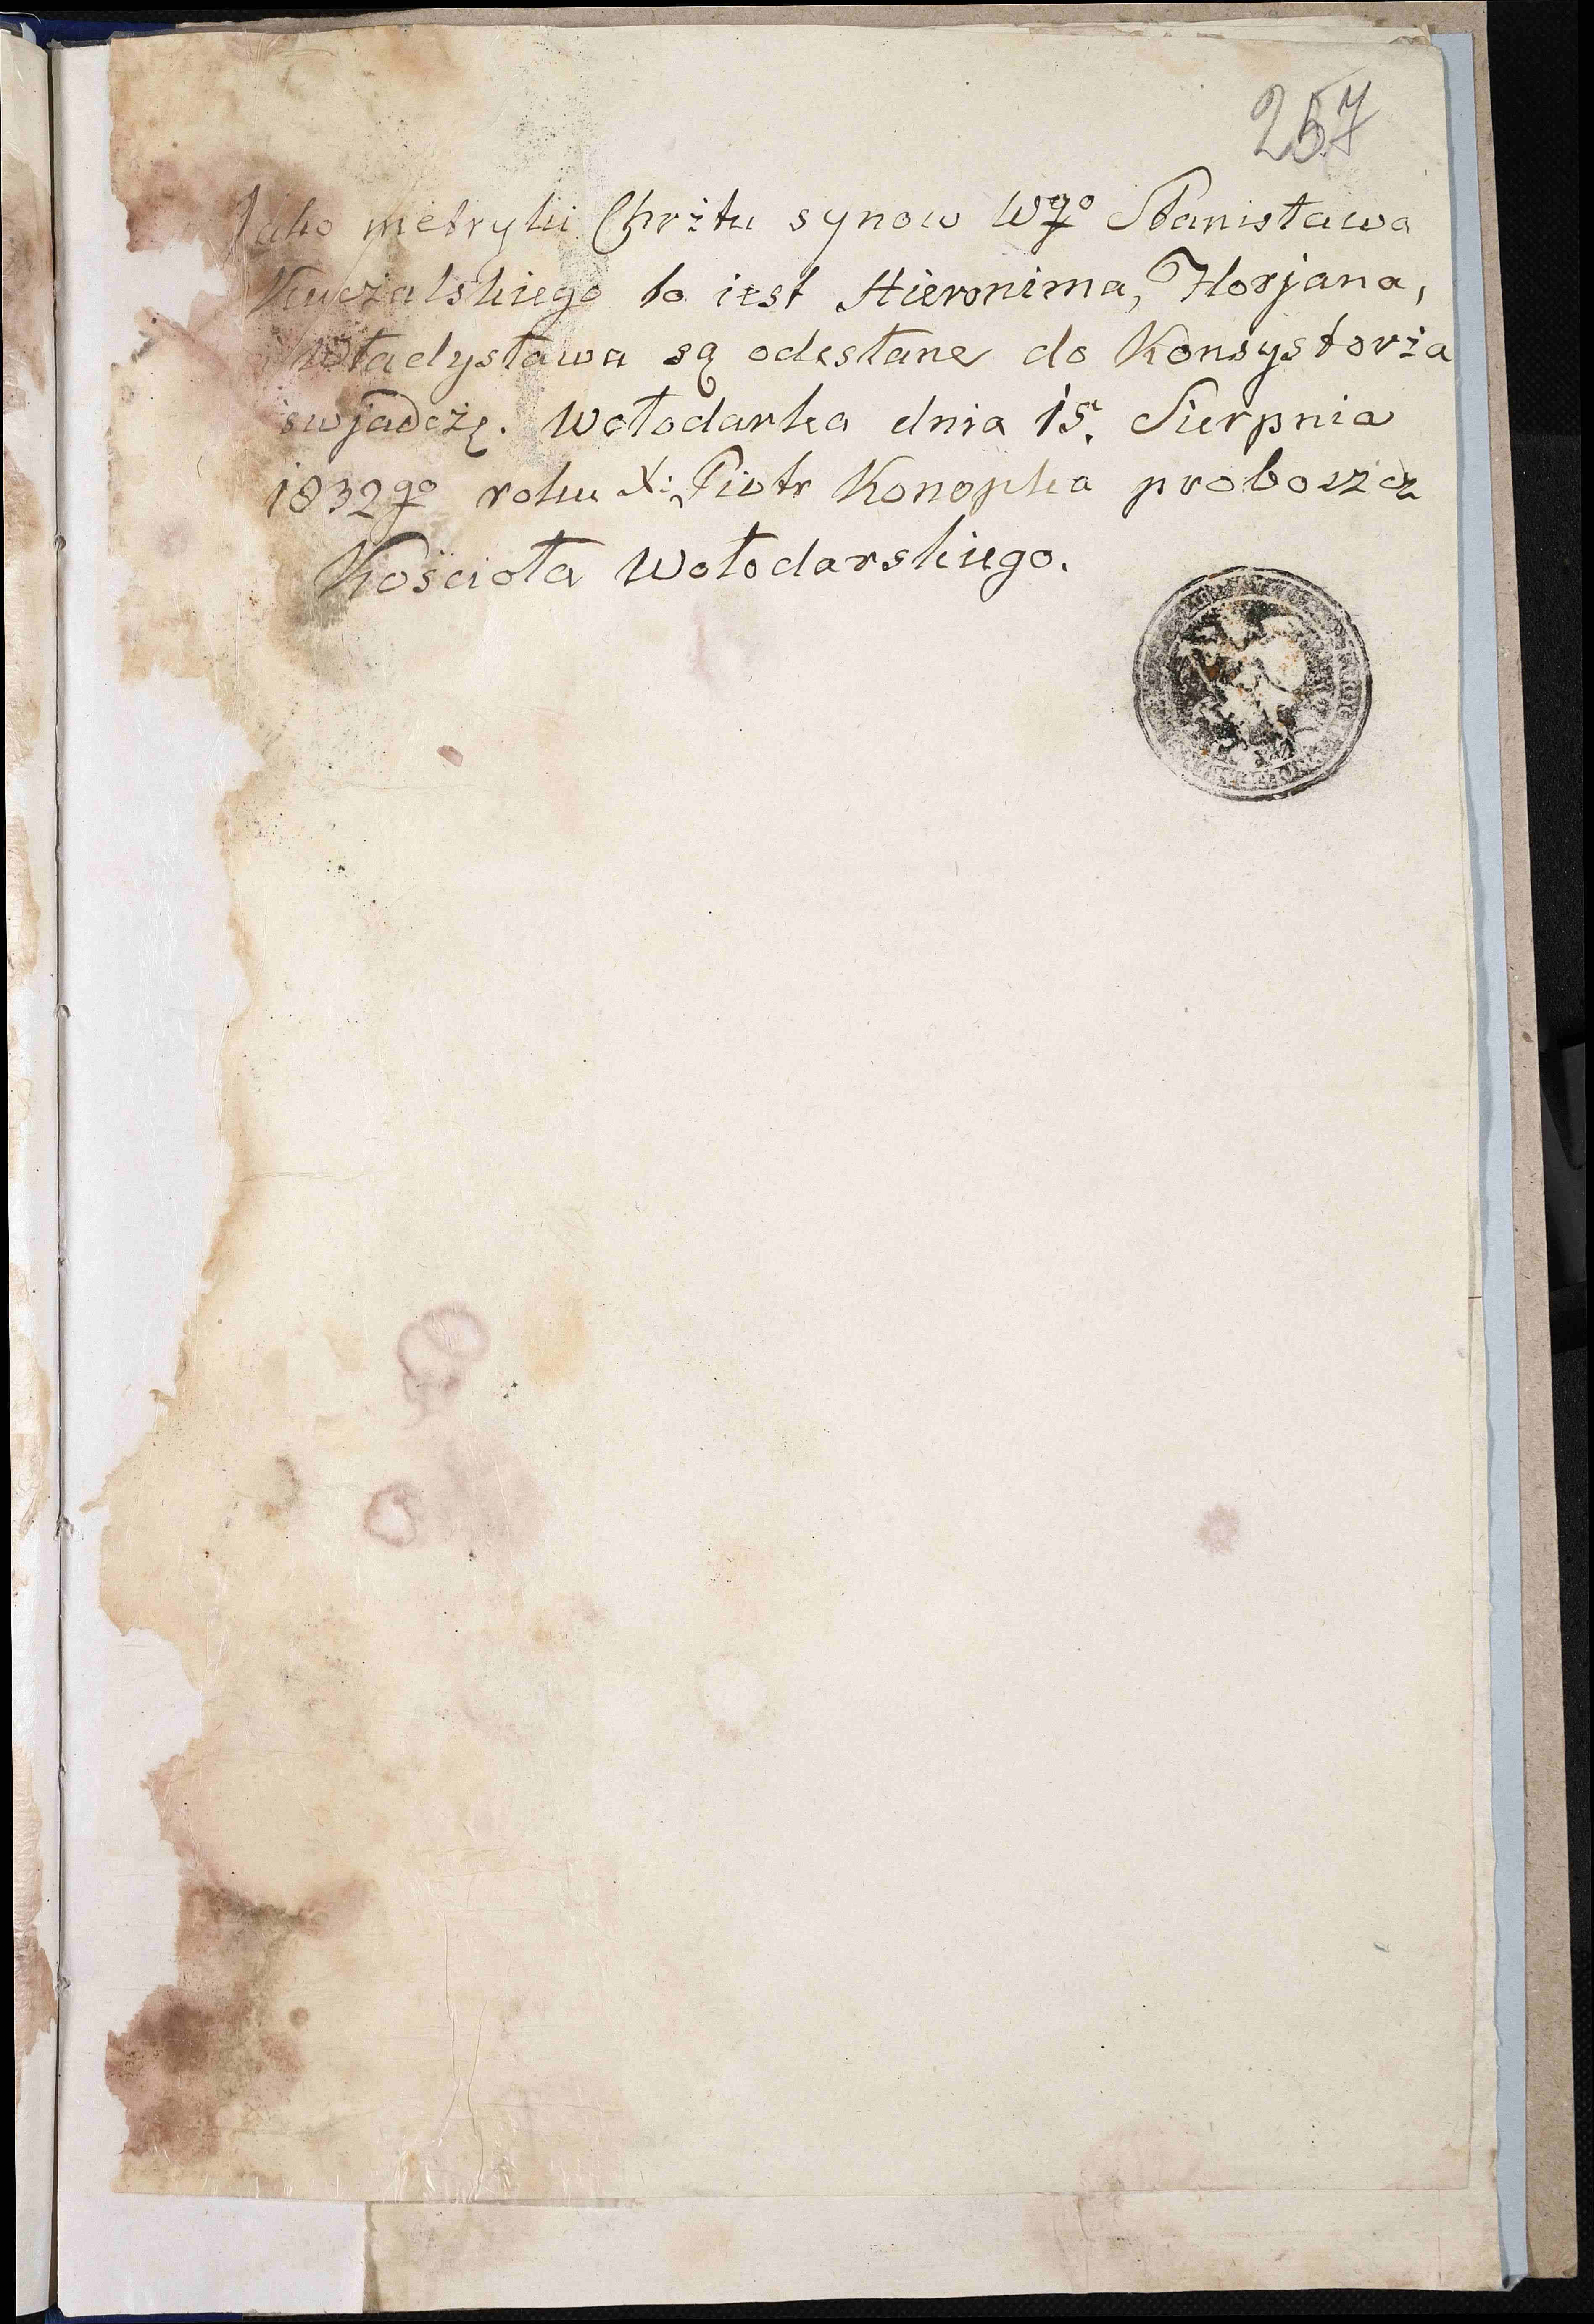 257
Jako metryki Chrztu synow Wgo Stanisława
Kuczalskiego to iest Hieronima, Florjana,
Władysława są odesłane do Konsystorża
swjadczę. Wołodarka dnia 15. Sierpnia
1832go roku X: Piotr Konopka proboszcz
Kościoła Wołodarskiego.